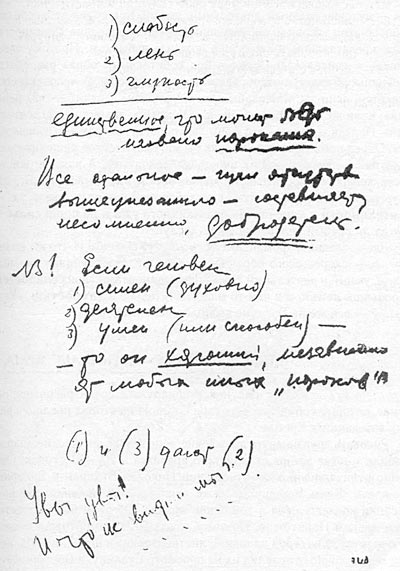 1) слабость
2) лень
3) глупость
единственное, что может быть
названо пороками.
Все остальное — при отсутствии
вышеуказанного — составляет
несомненно, добродетель.
NB! Если человек
1) силен (духовно)
2) деятелен
3) умен (или способен) —
— то он хороший, независимо
от любых иных „пороков"
(1) и (3) дают (2)
Увы, увы!
И что не